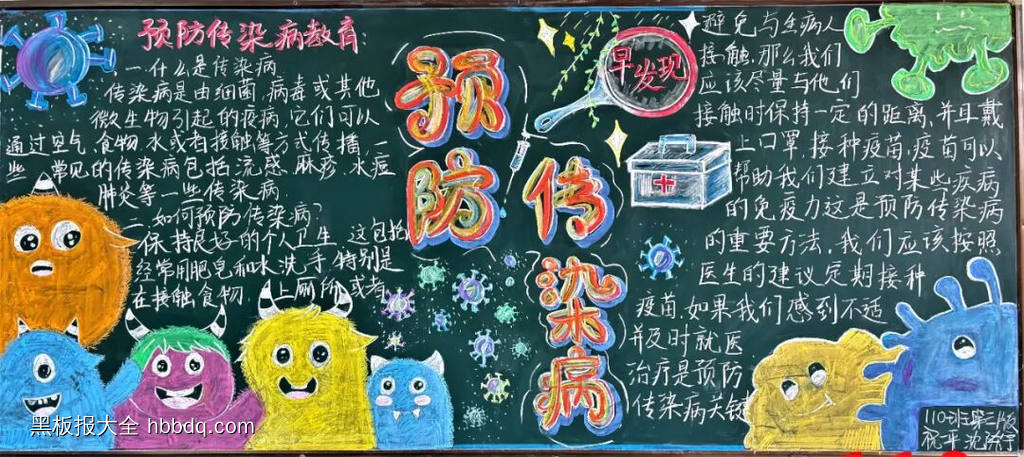 预防传染病教育:
一.什么是传染病
传染病是由细菌,病毒或其他
微生物引起的疫病,它们可以
通过空气,食物,水或者接触等方式传播,一
些 常见的传染病包括流感,麻疹,水痘
肺炎等一些传染病
二.如何预防传染病?
保持良好的个人卫生,这包括
经常用肥皂和水洗手,特别是
在接触食物、上厕所,或者
预防
传染病
早发现
避免与生病人
接触,那么我们
应该尽量与他们
接触时保持一定的距离,并且戴
上口罩,接种疫苗,疫苗可以
帮助我们建立对某些疾病
的免疫力这是预防传染病
的重要方法,我们应该按照
医生的建议定期接种
疫苗,如果我们感到不适
并及时就医
治疗是预防
传染病关键
110班第三版
黑板报大全 hbbdq.com